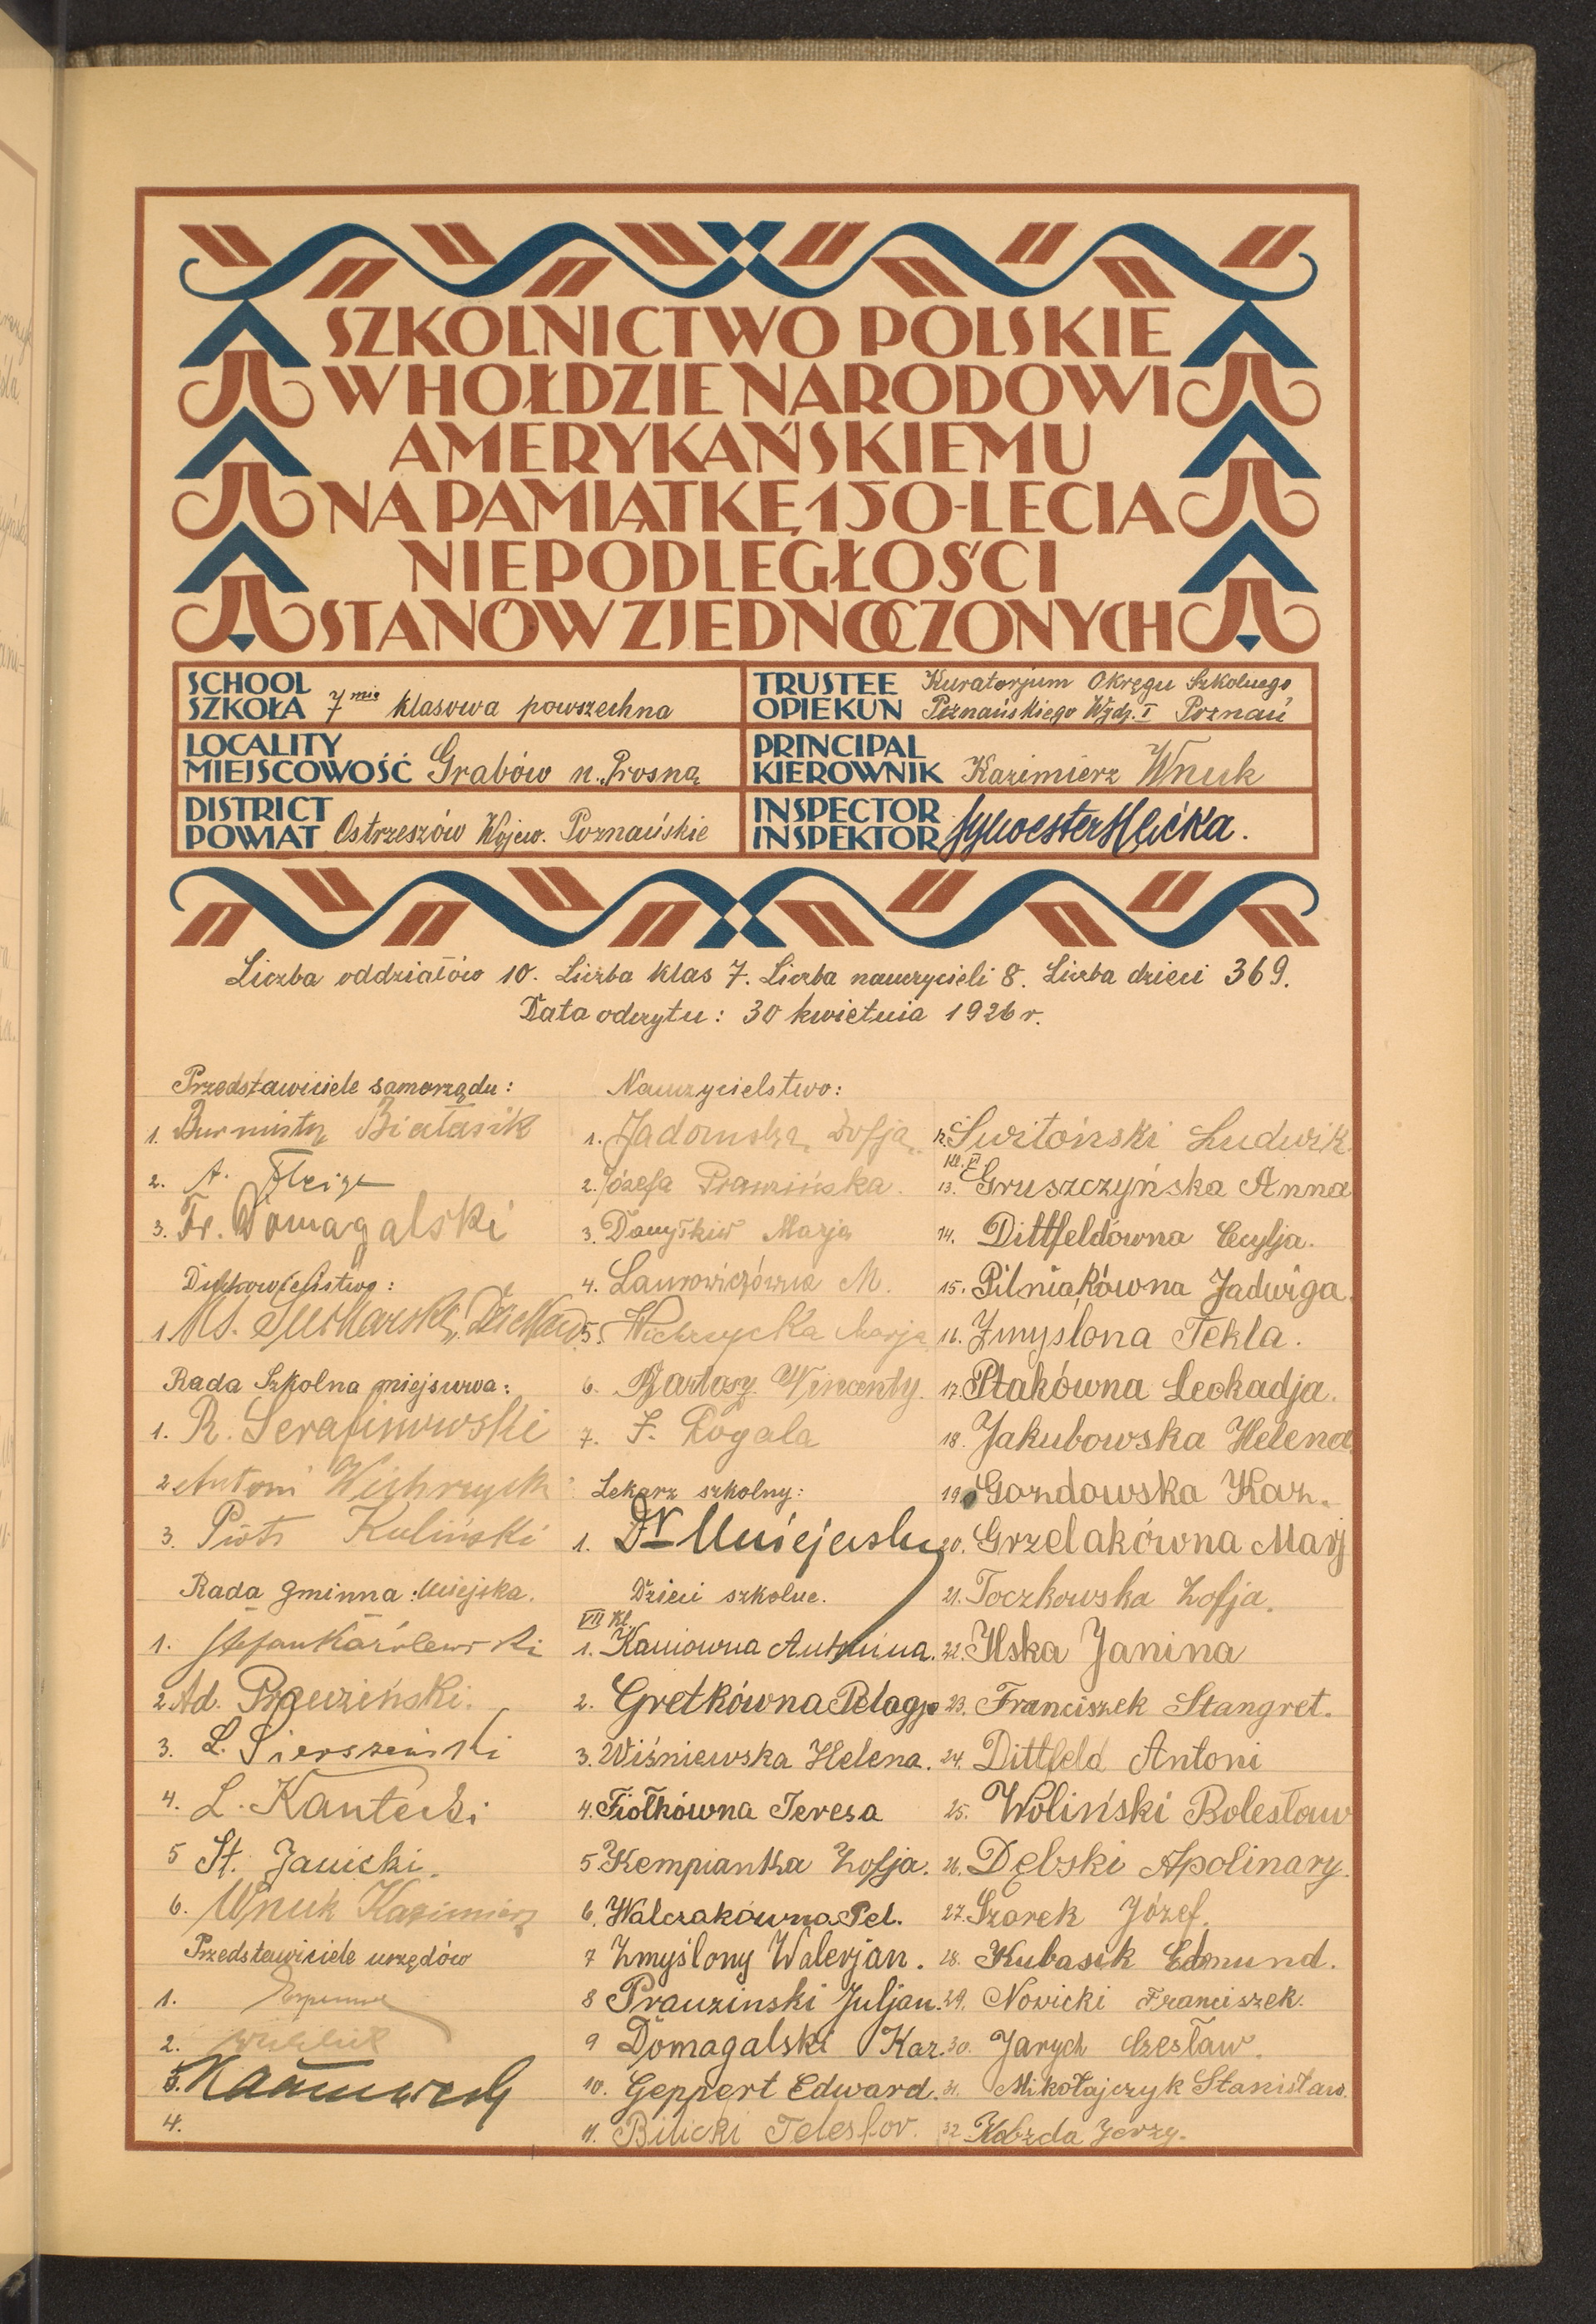 SZKOLNICTWO POLSKIE
W HOŁDZIE NARODOWI
AMERYKAŃSKIEMU
NA PAMIĄTKĘ 150-LECIA
NIEPODLEGŁOŚCI
STANÓW ZJEDNOCZONYCH
SCHOOL
SZKOŁA 7mio klasowa powszechna
TRUSTEE
OPIEKUN Kuratorjum Okręgu Szkolnego
Poznańskiego Wydz. I Poznań
LOCALITY
MIEJSCOWOŚĆ Grabów n. Prosną
PRINCIPAL
KIEROWNIK Kazimierz Wnuk
DISTRICT
POWIAT Ostrzeszów Wojew. Poznańskie
INSPECTOR
INSPEKTOR Sylwester
Liczba oddziałów 10. Liczba klas 7. Liczba nauczycieli 8. Liczba dzieci 369.
Data odczytu: 30 kwietnia 1926 r.
Przedstawiciele samorządu:
1. Burmistrz Białasik
2. A.
3. Fr. Domagalski
Duchowieństwo:
1. Ks.
Rada Szkolna miejscowa:
1. R. Serafinowski
2 Antoni Wichrzycki
3. Piotr Kuliński
Rada gminna: Miejska.
1. Stefan Karolewski
2 Ad. Prauziński.
3. L. Sierszeński
4. L. Kantecki
5 St. Janicki.
6. Wnuk Kazimierz
Przedstawiciele urzędów
1.
2.
3.
4.
Nauczycielstwo:
1. Zofja
2. Józefa Prauzińska.
3. Marja
4. M.
5. Wichrzycka Marja
6. Bartosz Wincenty.
7. F. Rogala
Lekarz szkolny:
1. Dr
Dzieci szkolne.
VII Kl.
1. Kaniowna Antonina.
2. Gretkówna Pelagja
3. Wiśniewska Helena.
4. Fiołkówna Teresa
5 Kempianka Zofja.
6. Walczakówna Pel.
7 Zmyślony Walerjan.
8 Prauzinski Juljan.
9 Domagalski Kaz.
10. Geppert Edward.
11. Bilicki Telesfor.
12. Świtoński Ludwik
Kl. VI
13. Gruszczyńska Anna
14. Dittfeldówna Cecylja.
15. Pilniakówna Jadwiga.
16. Zmyślona Tekla.
17. Ptakówna Leokadja.
18. Jakubowska Helena
19. Gozdowska Kaz.
20. Grzelakówna Marj
21. Toczkowska Zofja.
22. Ilska Janina
23. Franciszek Stangret.
24. Dittfeld Antoni
25. Woliński Bolesław
26. Dębski Apolinary.
27. Szarek Józef.
28. Kubasik Edmund.
29. Nowicki Franciszek.
30. Jarych Czesław.
31. Mikołajczyk Stanisław.
32. Kobzda Jerzy.